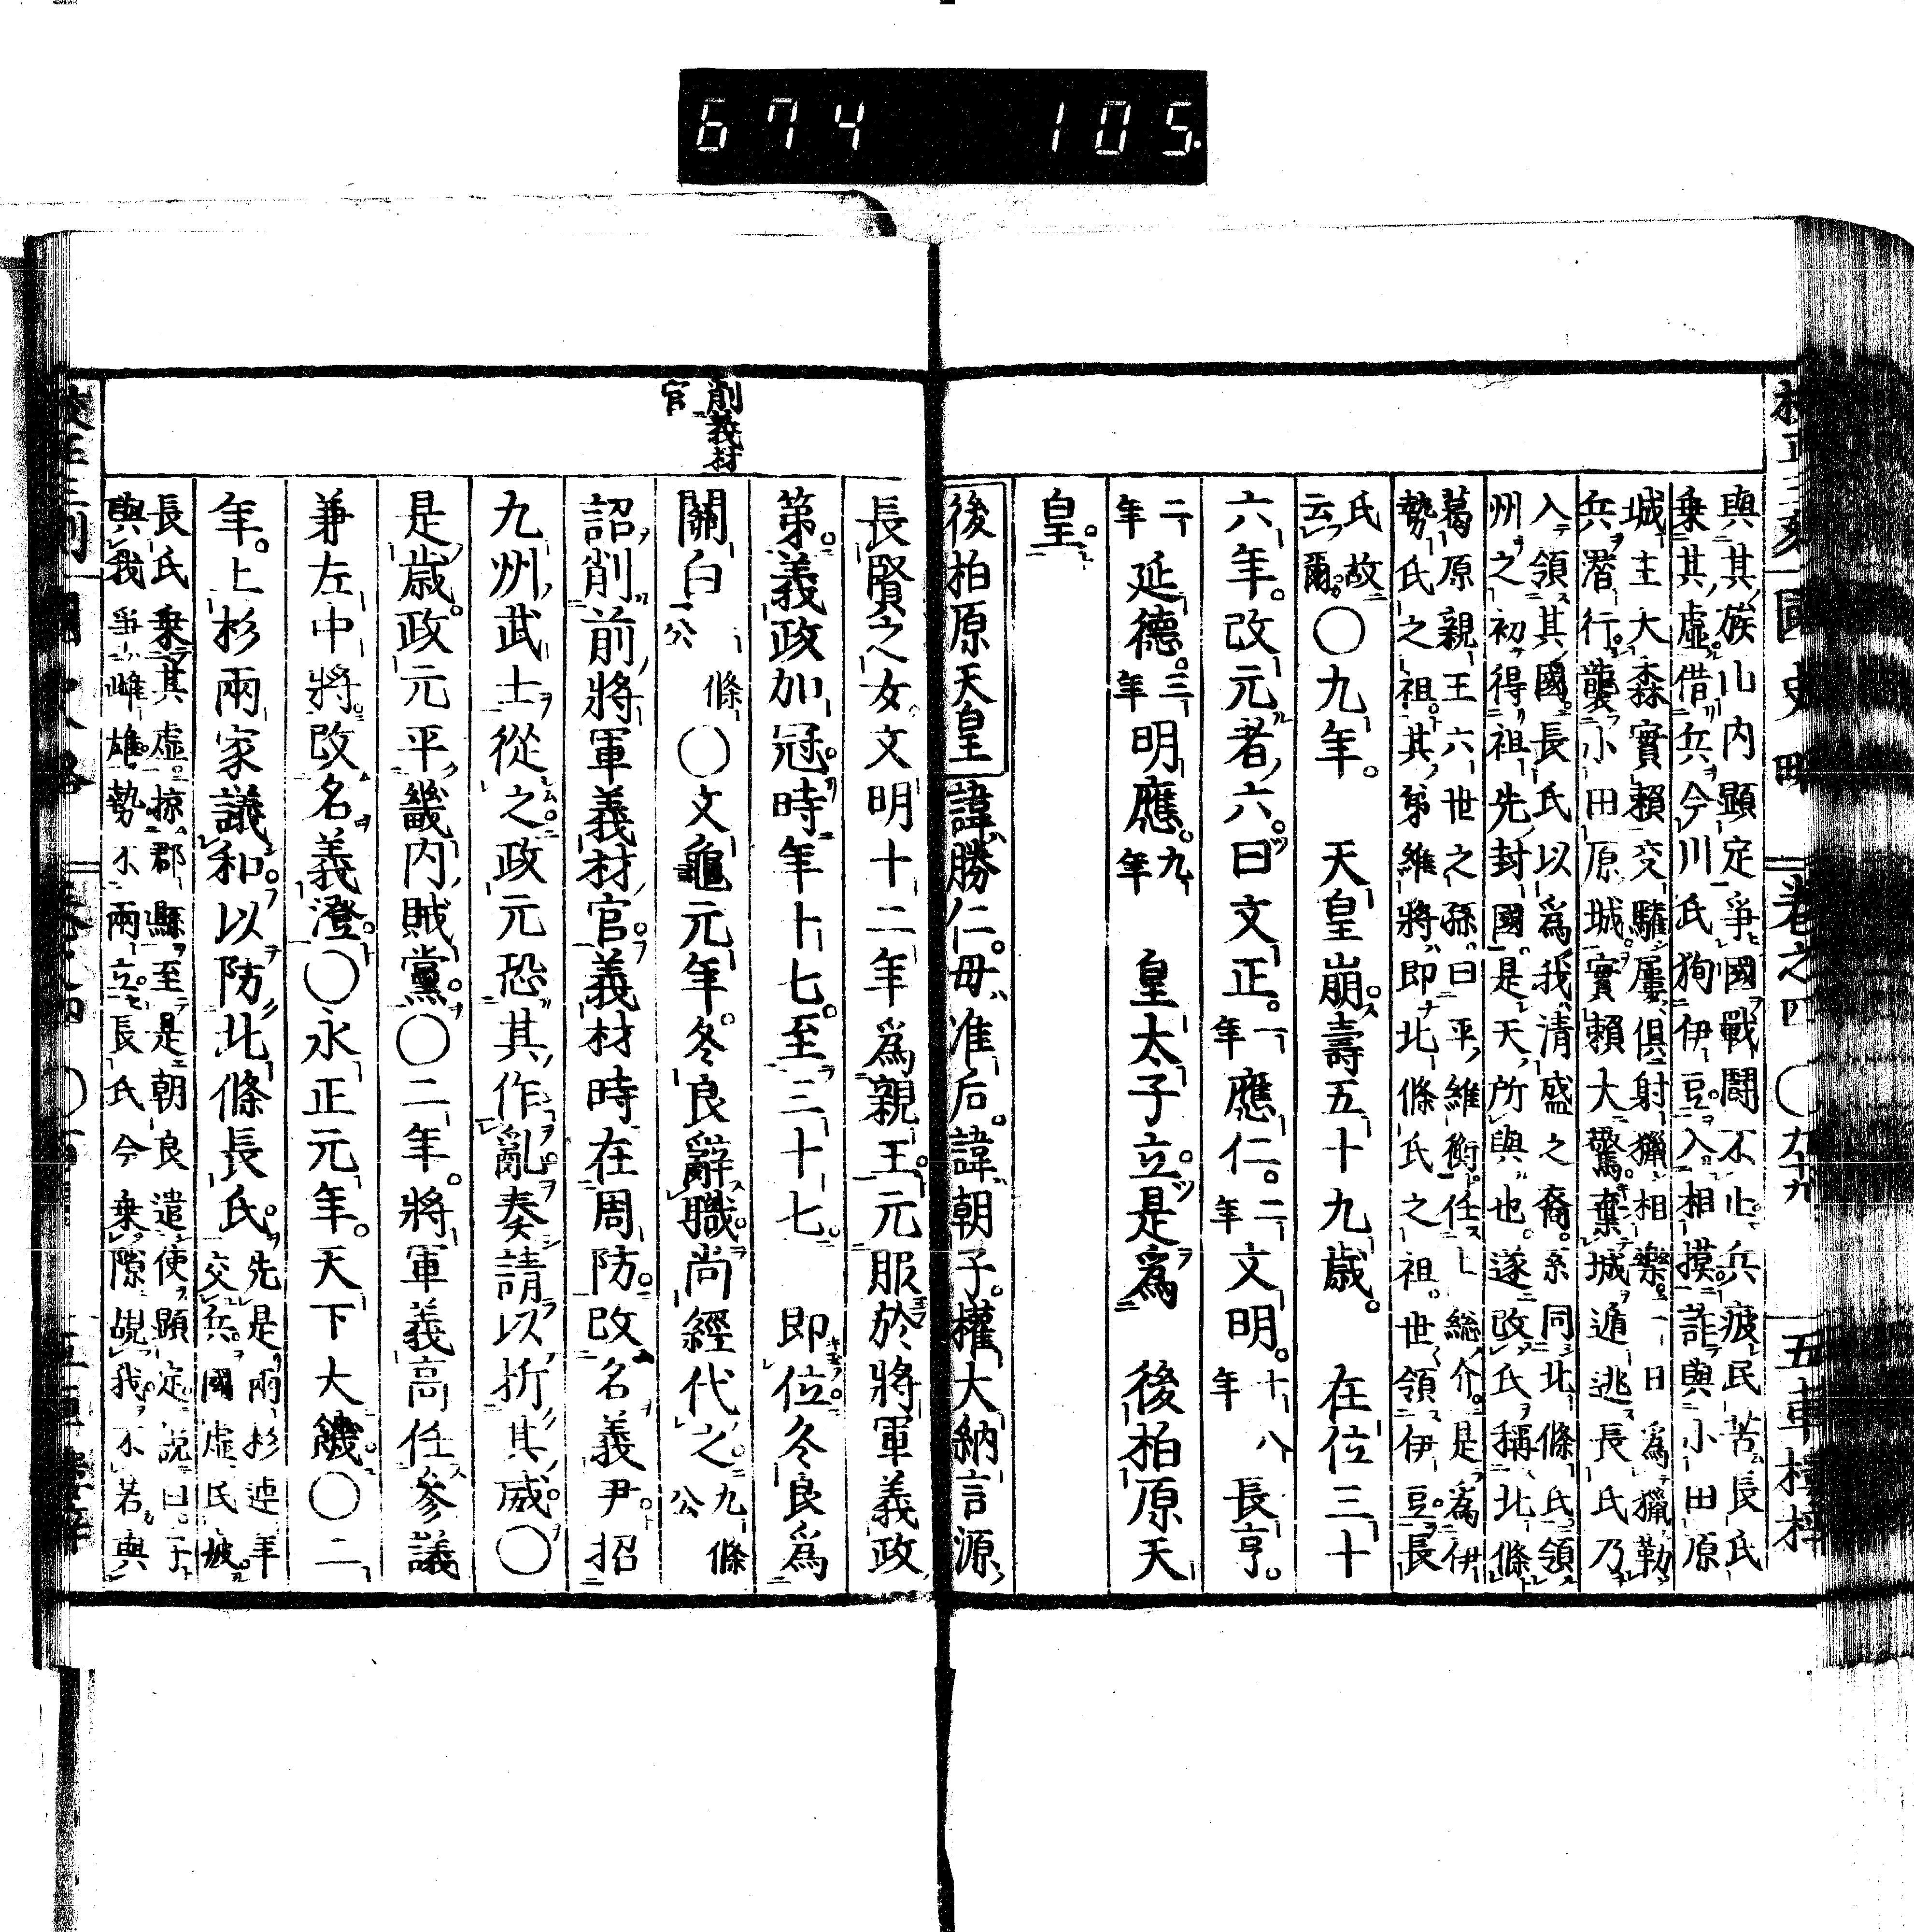 674 105.
國史略 卷之四 ○ 五車樓梓
與其族山内顯定爭國戰鬪不止兵疲民苦長氏
乘其虛借兵今川氏狥伊豆入相摸詐與小田原
城主大森實賴交驩屢俱射獵相樂一日爲獵勒
兵潛行襲小田原城實賴大驚棄城遁逃長氏乃
入領其國長氏以爲我清盛之裔系同北條氏領
州之初得祖先封國是天所與也遂改氏稱北條
葛原親王六世之孫曰平維衡任上總介是爲伊
勢氏之祖其弟維將即北條氏之祖世領伊豆長
氏故
云爾
○九年。天皇崩。壽五十九歲。在位三十
六年。改元者六。曰文正。一年應仁。二年文明。十八年長亨。
二年延德。三年明應。九年皇太子立。是爲後柏原天
皇。
後柏原天皇 諱勝仁。母准后。諱朝子。權大納言源
長賢之女。文明十二年爲親王。元服於將軍義政
第。義政加冠。時年十七。至三十七。即位。冬良爲
關白一條公○文龜元年。冬良辭職。尚經代之。九條公
削義材官
詔削前將軍義材官。義材時在周防。改名義尹。招
九州武士從之。政元恐其作亂。奏請以折其威。○
是歲。政元平畿内賊黨。○二年。將軍義高任參議
兼左中將。改名義澄。○永正元年。天下大饑。○二
年。上杉兩家議和。以防北條長氏。
先是兩杉連年
交兵。國虛民疲。
長氏乘其虛。掠郡縣至是朝良遣使顯定。說曰。予
與我爭雌雄。勢不兩立。長氏今乘隙覘我。不若與